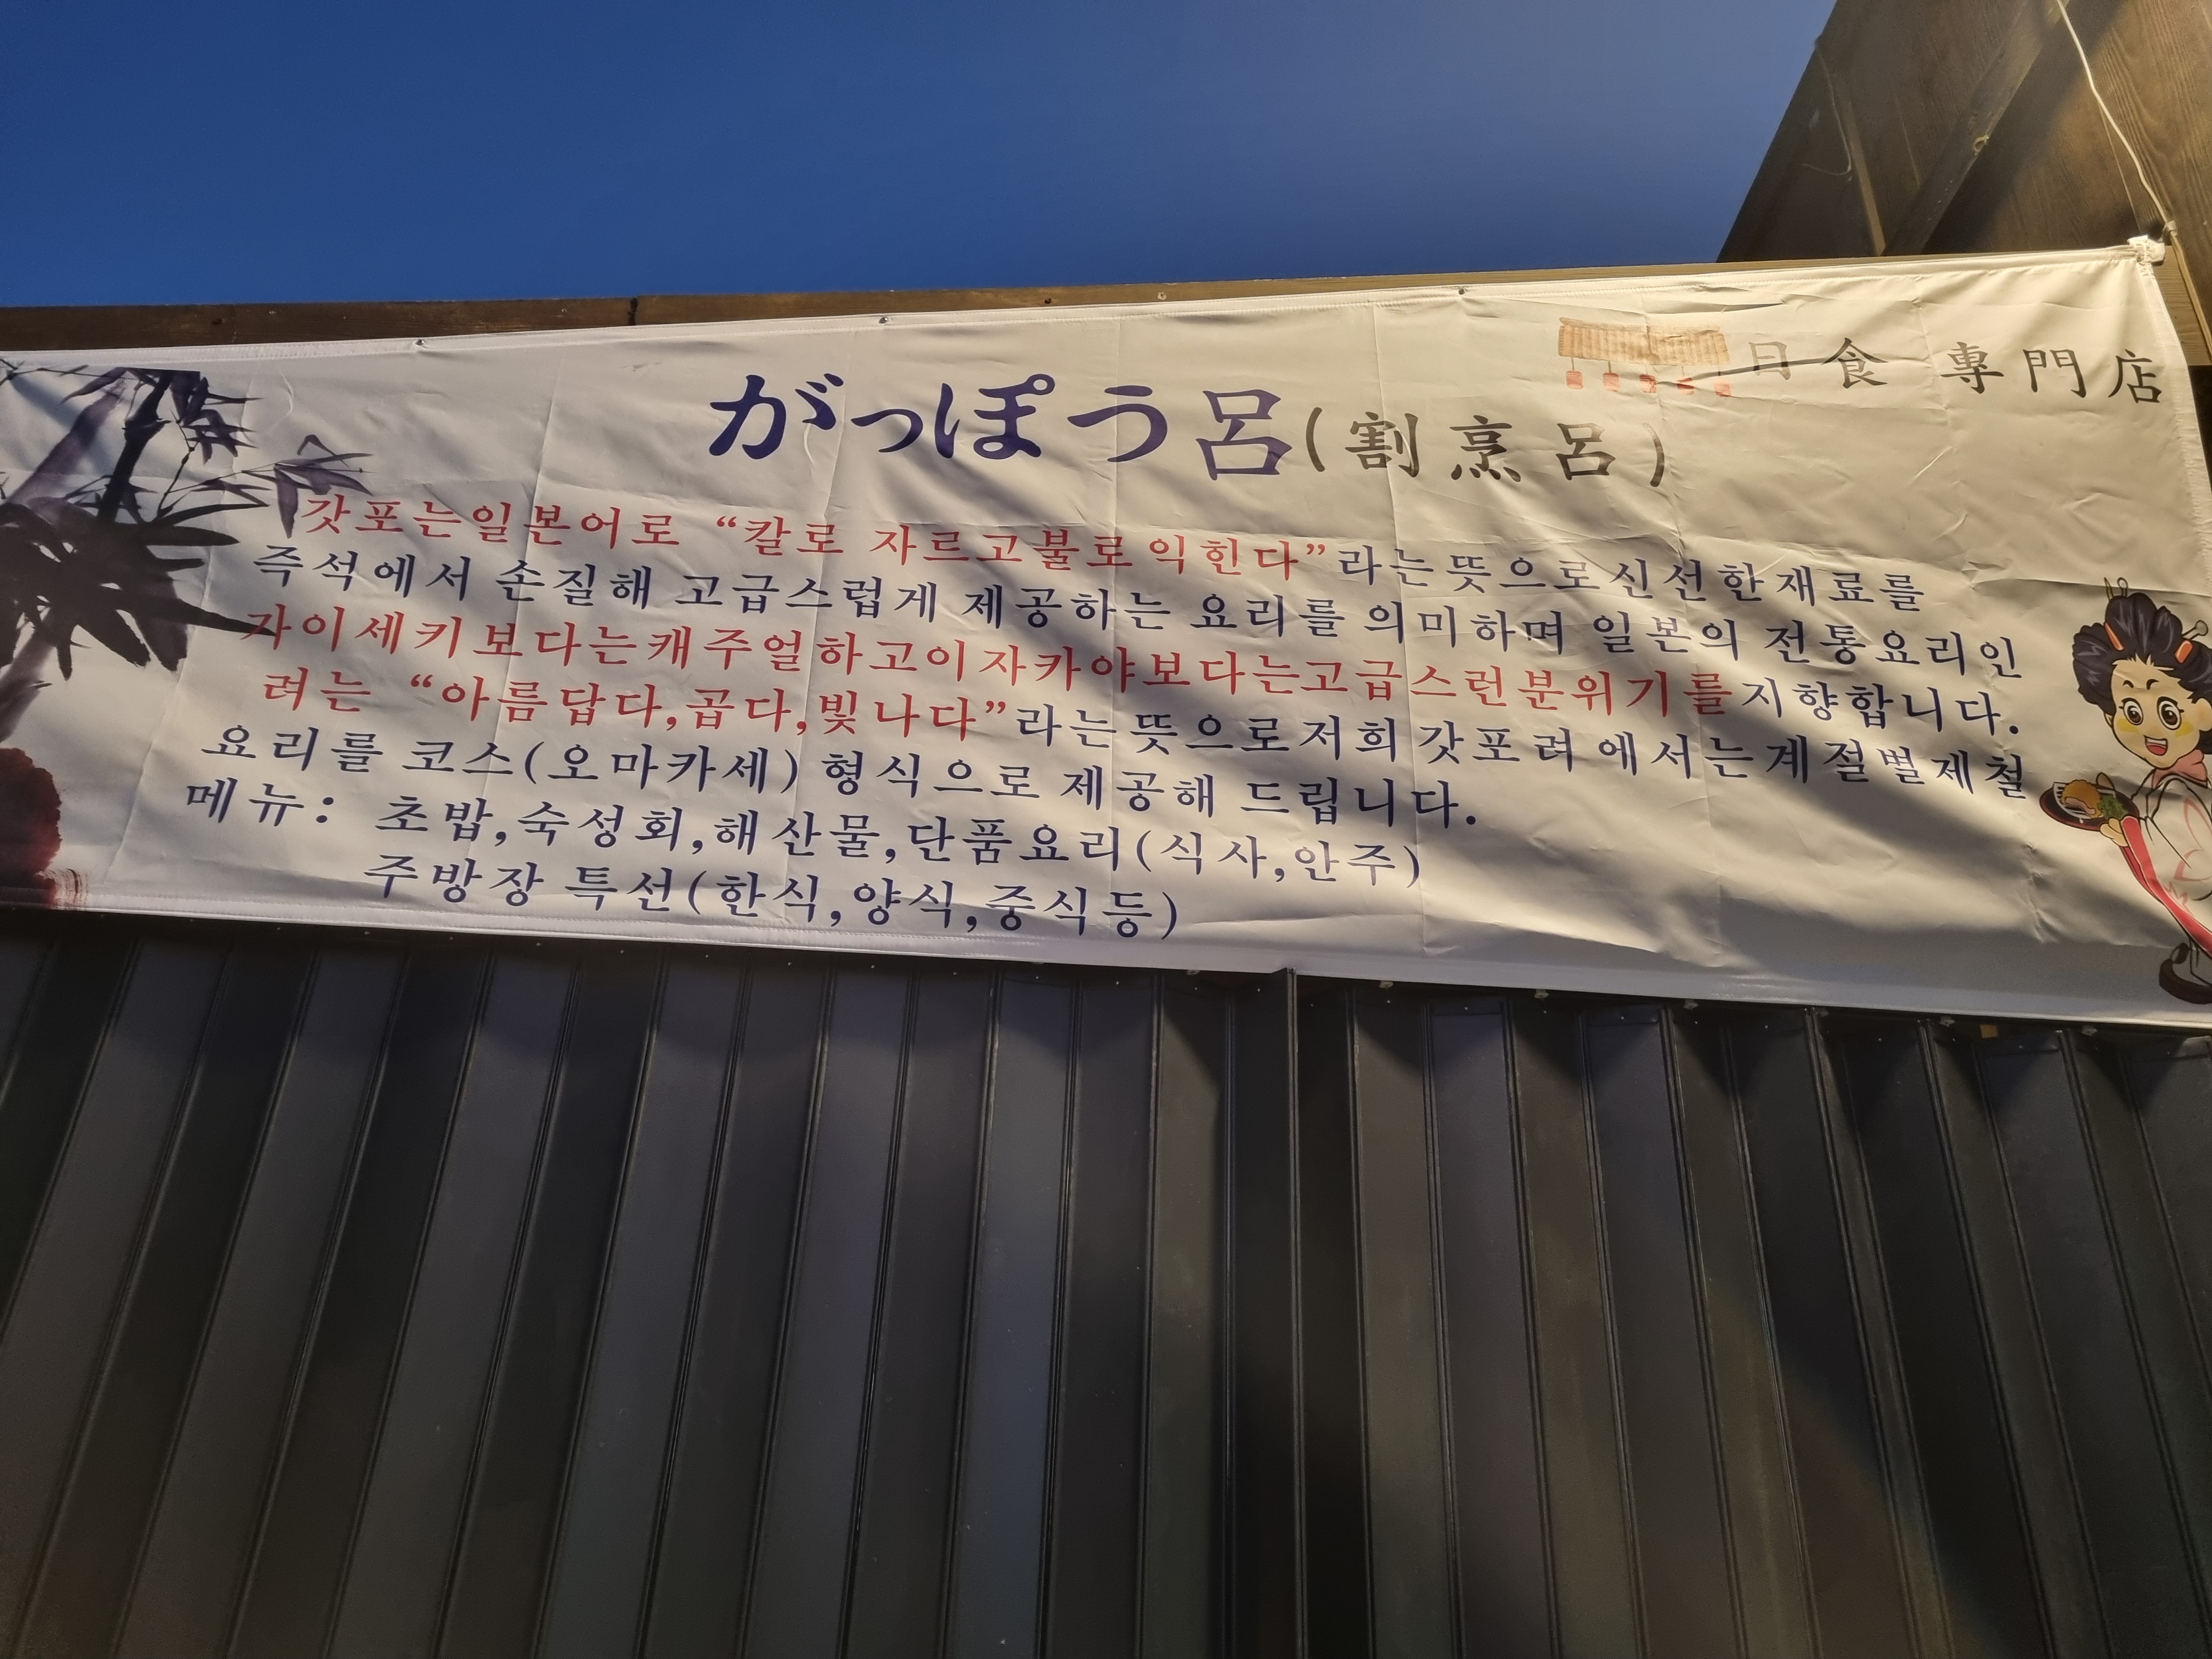 日食 專門店
がっぽう呂(割烹呂)
갓포는일본어로 “칼로 자르고불로익힌다”라는뜻으로신선한재료를
즉석에서 손질해 고급스럽게 제공하는 요리를 의미하며 일본의 전통요리인
가이세키보다는캐주얼하고이자카야보다는고급스런분위기를지향합니다.
려는 “아름답다,곱다,빛나다”라는뜻으로저희 갓포려 에서는계절별제철
요리를 코스(오마카세) 형식으로 제공해 드립니다.
메뉴: 초밥,숙성회,해산물,단품요리(식사,안주)
주방장 특선(한식,양식,중식등)